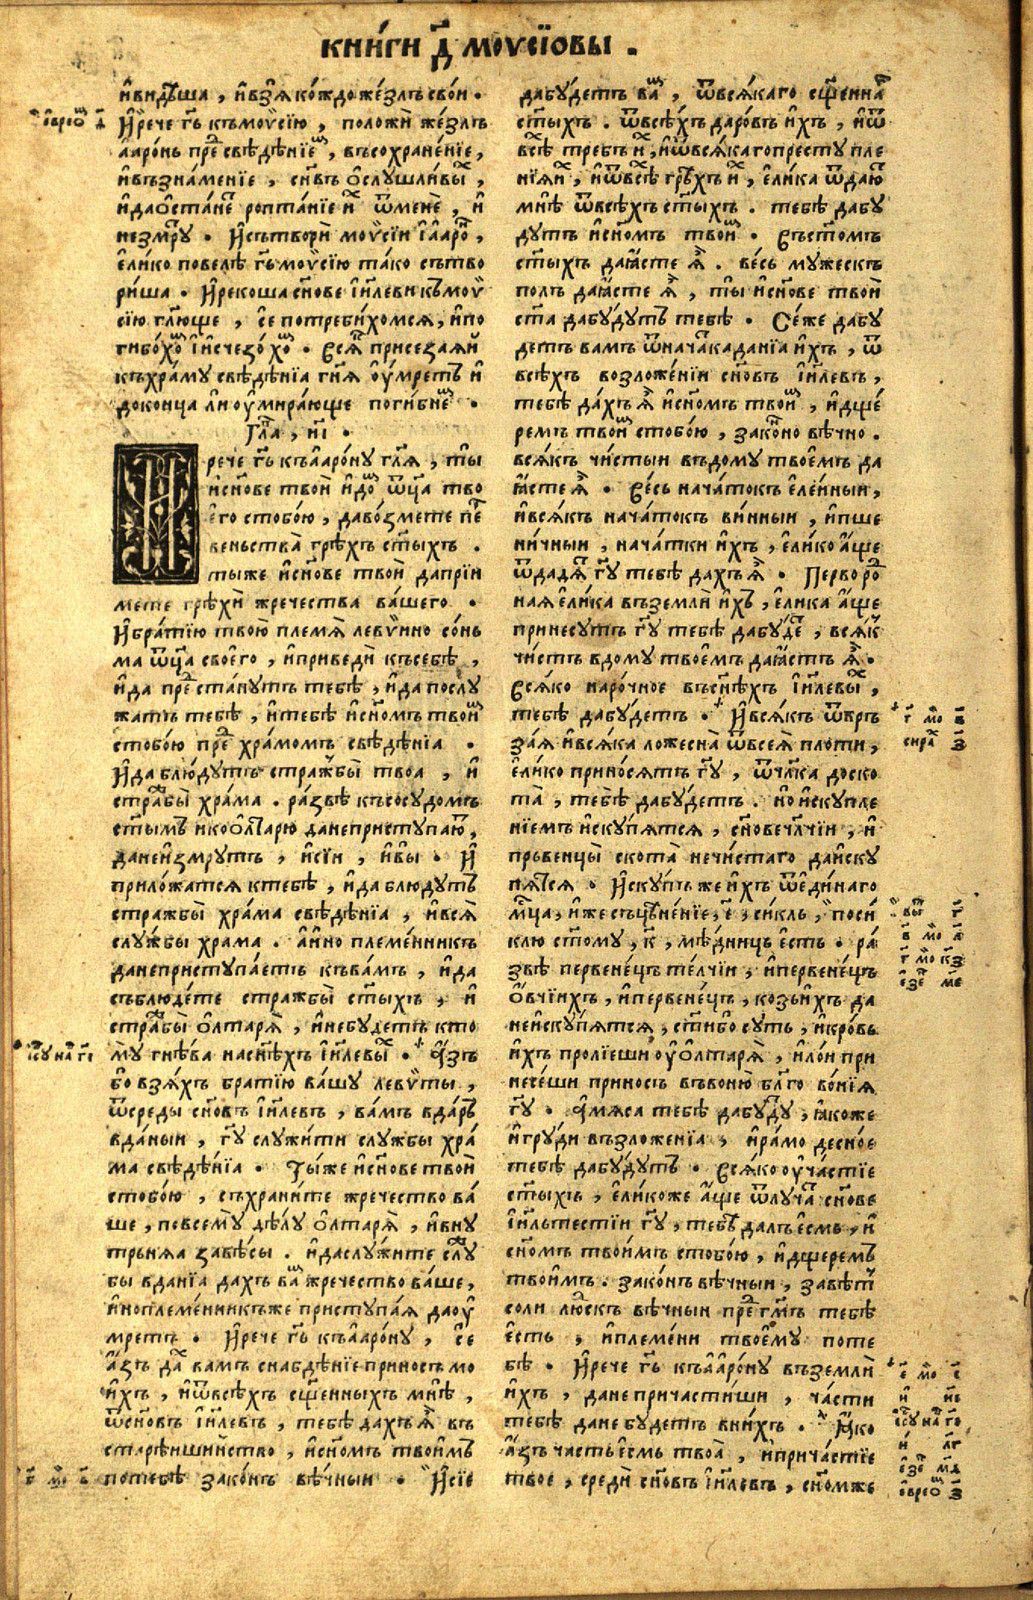 КНИ́ГИ Д҃ МОѴСЇОВЫ .
и҆видѣша , и҆взѧко́ждоже́злъ сво́и .
И҆рече гь҃ къмоѵсїю , положѝ же́злъ
а҆аро́нь пре свѣдѣ́нїе , въсохране́нїе ,
и҆възна́менїе , сн҃въ о҆слушли́вы ,
и҆даѡ҆ста́не ропта́нїе и ѿменѐ , и҆
неꙁмрꙋ . И҆сътворѝ моѵсїи и҆а҆аро ,
е҆ли́ко повелѣ гь҃моѵсїю та́ко сътво
ри́ша . И҆рекоша сн҃ове і҆и҃леви къмоѵ
сїю гл҃юще , се потреби́хомсѧ , и҆по
гибо́хо и҆исчезо́хо . Всѧ присеѕаѧи
къхра́мꙋ свѣдѣ́нїа гн҃ѧ ѹ҆мретъ и҆
доконца ли ѹ҆мира́юще поги́бне .
Гла , и҃і .
рече гь҃ къа҆аро́нꙋ гл҃ѧ , ты̀
и҆сн҃ове твоѝ и҆до ѿц҃а тво
е҆го стобо́ю , даво́змете пе
веньства̀ грѣхъ ст҃ыхъ .
тыже и҆сн҃ове твоѝ дапрїи
мете грѣхѝ жречества ва́шего .
И҆бра́тїю твою̀ племѧ̀ левѵ́ино со́нь
ма ѿц҃а своего̀ , и҆приведѝ къ себѣ ,
и҆да пре ста́нꙋтъ тебѣ , и҆да послꙋ
жатъ тебѣ , и҆тебѣ и҆сн҃омъ твои
стобо́ю пре хра́момъ свѣдѣ́нїа .
И҆да блюдꙋ́тъ стра́жбы̀ твоа , и҆
страбы̀ хра́ма . ра́звѣ къ сосꙋдомъ
ст҃ымъ и ко о҆лтарю данеприступаю ,
данеи҆змрꙋтъ , и҆сїи , и҆вы̀ . И҆
прило́жатсѧ ктебѣ , и҆да блюдꙋтъ
стражбы̀ хра́ма свѣдѣ́нїа , и҆всѧ̀
слꙋ́жбы храма . а҆и҆но племе́нникъ
данеприступа́етъ къва́мъ , и҆да
съблюде́те стражбы̀ ст҃ыхъ , и҆
страбы̀ о҆лтарѧ̀ , и҆небꙋдетъ кто
мꙋ̀ гнѣ́ва насн҃ѣхъ і҆и҃левы . А҆́зъ
бо взѧхъ братїю ва́шꙋ левѵ́ты ,
ѿсреды сн҃овъ і҆и҃левъ , ва́мъ вда́ръ
вда́ныи , гꙋ҃ слꙋжи́ти слꙋ́жбы хра́
ма свѣдѣ́нїа . Ты́же и҆сн҃ове твоѝ
стобо́ю , съхрани́те жречество ва́
ше , повсемꙋ дѣ́лꙋ о҆лтарѧ̀ , и҆внꙋ
трьнѧа завѣ́сы . и҆даслꙋ́жите слꙋ
бы вда́нїа дахъ ва жречество ва́ше ,
и҆ноплеме́нникъже приступа́ѧ даѹ҆
мретъ . И҆рече гь҃ къа҆аро́нꙋ , се
а҆́зъ да вамъ снабдѣ́нїе приносъ мо
и҆хъ , и҆ѿвсѣхъ сщ҃е́нныхъ мнѣ ,
ѿсн҃овъ і҆и҃левъ , тебѣ дахъѧ въ
старѣ́ишинство , и҆сн҃омъ твоимъ
потебѣ зако́нъ вѣ́чныи . И҆сїе
дабꙋ́детъ ва , ѿвсѧ́каго сщ҃е́нна
ст҃ыхъ . ѿвсѣхъ даро́въ и҆хъ , и҆ѿ
всѣ требъ и , и҆ѿвсѧ́каго престꙋ пле
нїѧи , и҆ѿвсѣ грѣхъ и , е҆лика ѿдаю
мнѣ ѿвсѣхъ ст҃ыхъ . тебѣ дабꙋ
дꙋтъ и҆сн҃омъ твои . Въст҃омъ
ст҃ыхъ даꙗсте ѧ . весь мꙋжескъ
полъ даꙗсте ѧ , ты̀ и҆сн҃ове твоѝ
ст҃а дабꙋ́дꙋтъ тебѣ . Се́же дабꙋ
детъ вамъ ѿнача́кадані́а и҆хъ , ѿ
всѣхъ возложе́нїи сн҃овъ і҆и҃левъ ,
тебѣ да́хъѧ и҆сн҃омъ твои , и҆дще́
ремъ твои стобо́ю , зако́но вѣ́чно .
всѧкъ чи́стыи вдомꙋ твое́мъ да
ꙗсте ѧ . Весь нача́токъ е҆ле́иныи ,
и҆всѧ́къ нача́токъ ви́нныи , и҆пше
ни́чныи , нача́тки и҆хъ , е҆лико а҆́ще
ѿдадѧ гꙋ҃ тебѣ дахъѧ . Перворо
наѧ е҆лика въземлѝ и҆хъ , е҆лика а҆́ще
принесꙋ́тъ гꙋ҃ тебѣ дабꙋ́де , всѧк
чи́стъ вдомꙋ твое́мъ даꙗстъ ѧ .
Всѧко наро́чное въсн҃ѣхъ і҆и҃левы ,
тебѣ дабꙋ́детъ . И҆всѧкъ ѿвръ
за́ѧ и҆всѧка ложесна̀ ѿвсеѧ̀ пло́ти ,
е҆ли́ко прино́сѧтъ гꙋ҃ , ѿчл҃ка доско
та̀ , тебѣ дабꙋ́детъ . но и҆скꙋпле
нїемъ и҆скꙋ́пѧтсѧ , сн҃овечл҃чїи , и҆
прьвенцы̀ скота̀ нечи́стаго даи҆скꙋ
пѧтсѧ . И҆скꙋпъ же и҆хъ ѿеди́наго
мц҃а , и҆же съцѣне́нїе , е҃ , си́кль , поси́
клю ст҃омꙋ , к҃ , мѣ́дницъ е҆сть . ра́
звѣ первене́цъ те́лчїи , и҆первене́цъ
о҆́вчїихъ , и҆первене́цъ , козьи́хъ да
неи҆скꙋпѧтсѧ , ст҃и бо сꙋть , и҆кро́вь
и҆хъ пролїеши ѹ҆о҆лтарѧ̀ , и҆ло́и при
несе́ши приносъ въвоню̀ бл҃го во́нїѧ
гꙋ҃ . А҆мѧса тебѣ дабꙋ́дꙋ , ꙗкоже
и҆грꙋди възложенїа , и҆ра́мо десно́е
тебѣ дабꙋ́дꙋтъ . Всѧко ѹ҆ча́стїе
ст҃ыхъ , е҆ли́коже а҆́ще ѿлꙋча сн҃ове
і҆и҃льтестїи гꙋ҃ , тебѣ далъ е҆смь , и҆
сн҃омъ твои́мъ стобо́ю , и҆дщеремъ
твоимъ . зако́нъ вѣчныи , завѣт
соли людскъ вѣчныи пре гм҃ъ тебѣ
е҆сть , и҆племени твоемꙋ поте
бѣ . И҆рече гь҃ къа҆аро́нꙋ въземлѝ
и҆хъ , дане причасти́ши , ча́сти
тебѣ дане бꙋдетъ вни́хъ . Ꙗ҆ко
а҆́зъ часть е҆смь твоа̀ , и҆прича́стїе
твое , средѝ сн҃овъ і҆и҃левъ , сн҃омже